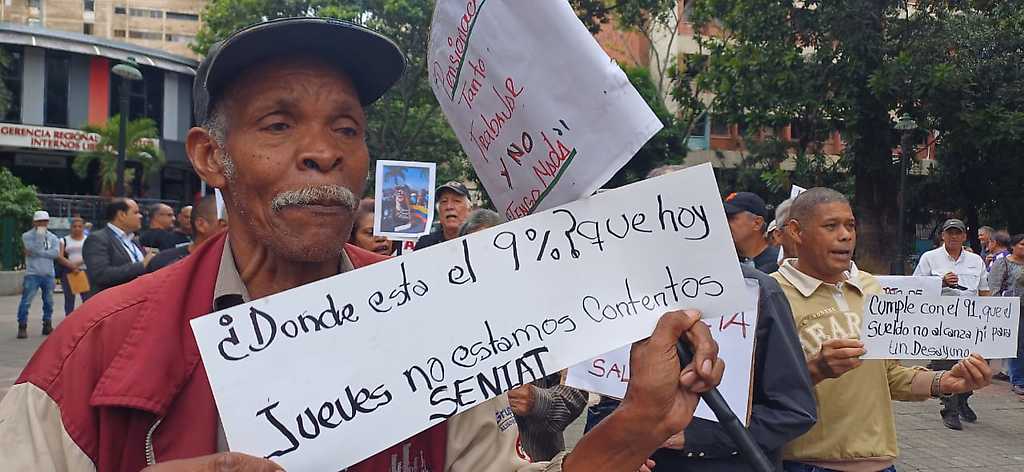 GERENCIA REGIONAL
INTERNOS
Pensionados
Tanto
Trabajar
y NO
Tengo Nada"
¿Donde esta el 9%? que hoy
Jueves no estamos Contentos
SENIAT
SAL
Cumple con el 91, que el
Sueldo no alcanza ni para
un Desayuno